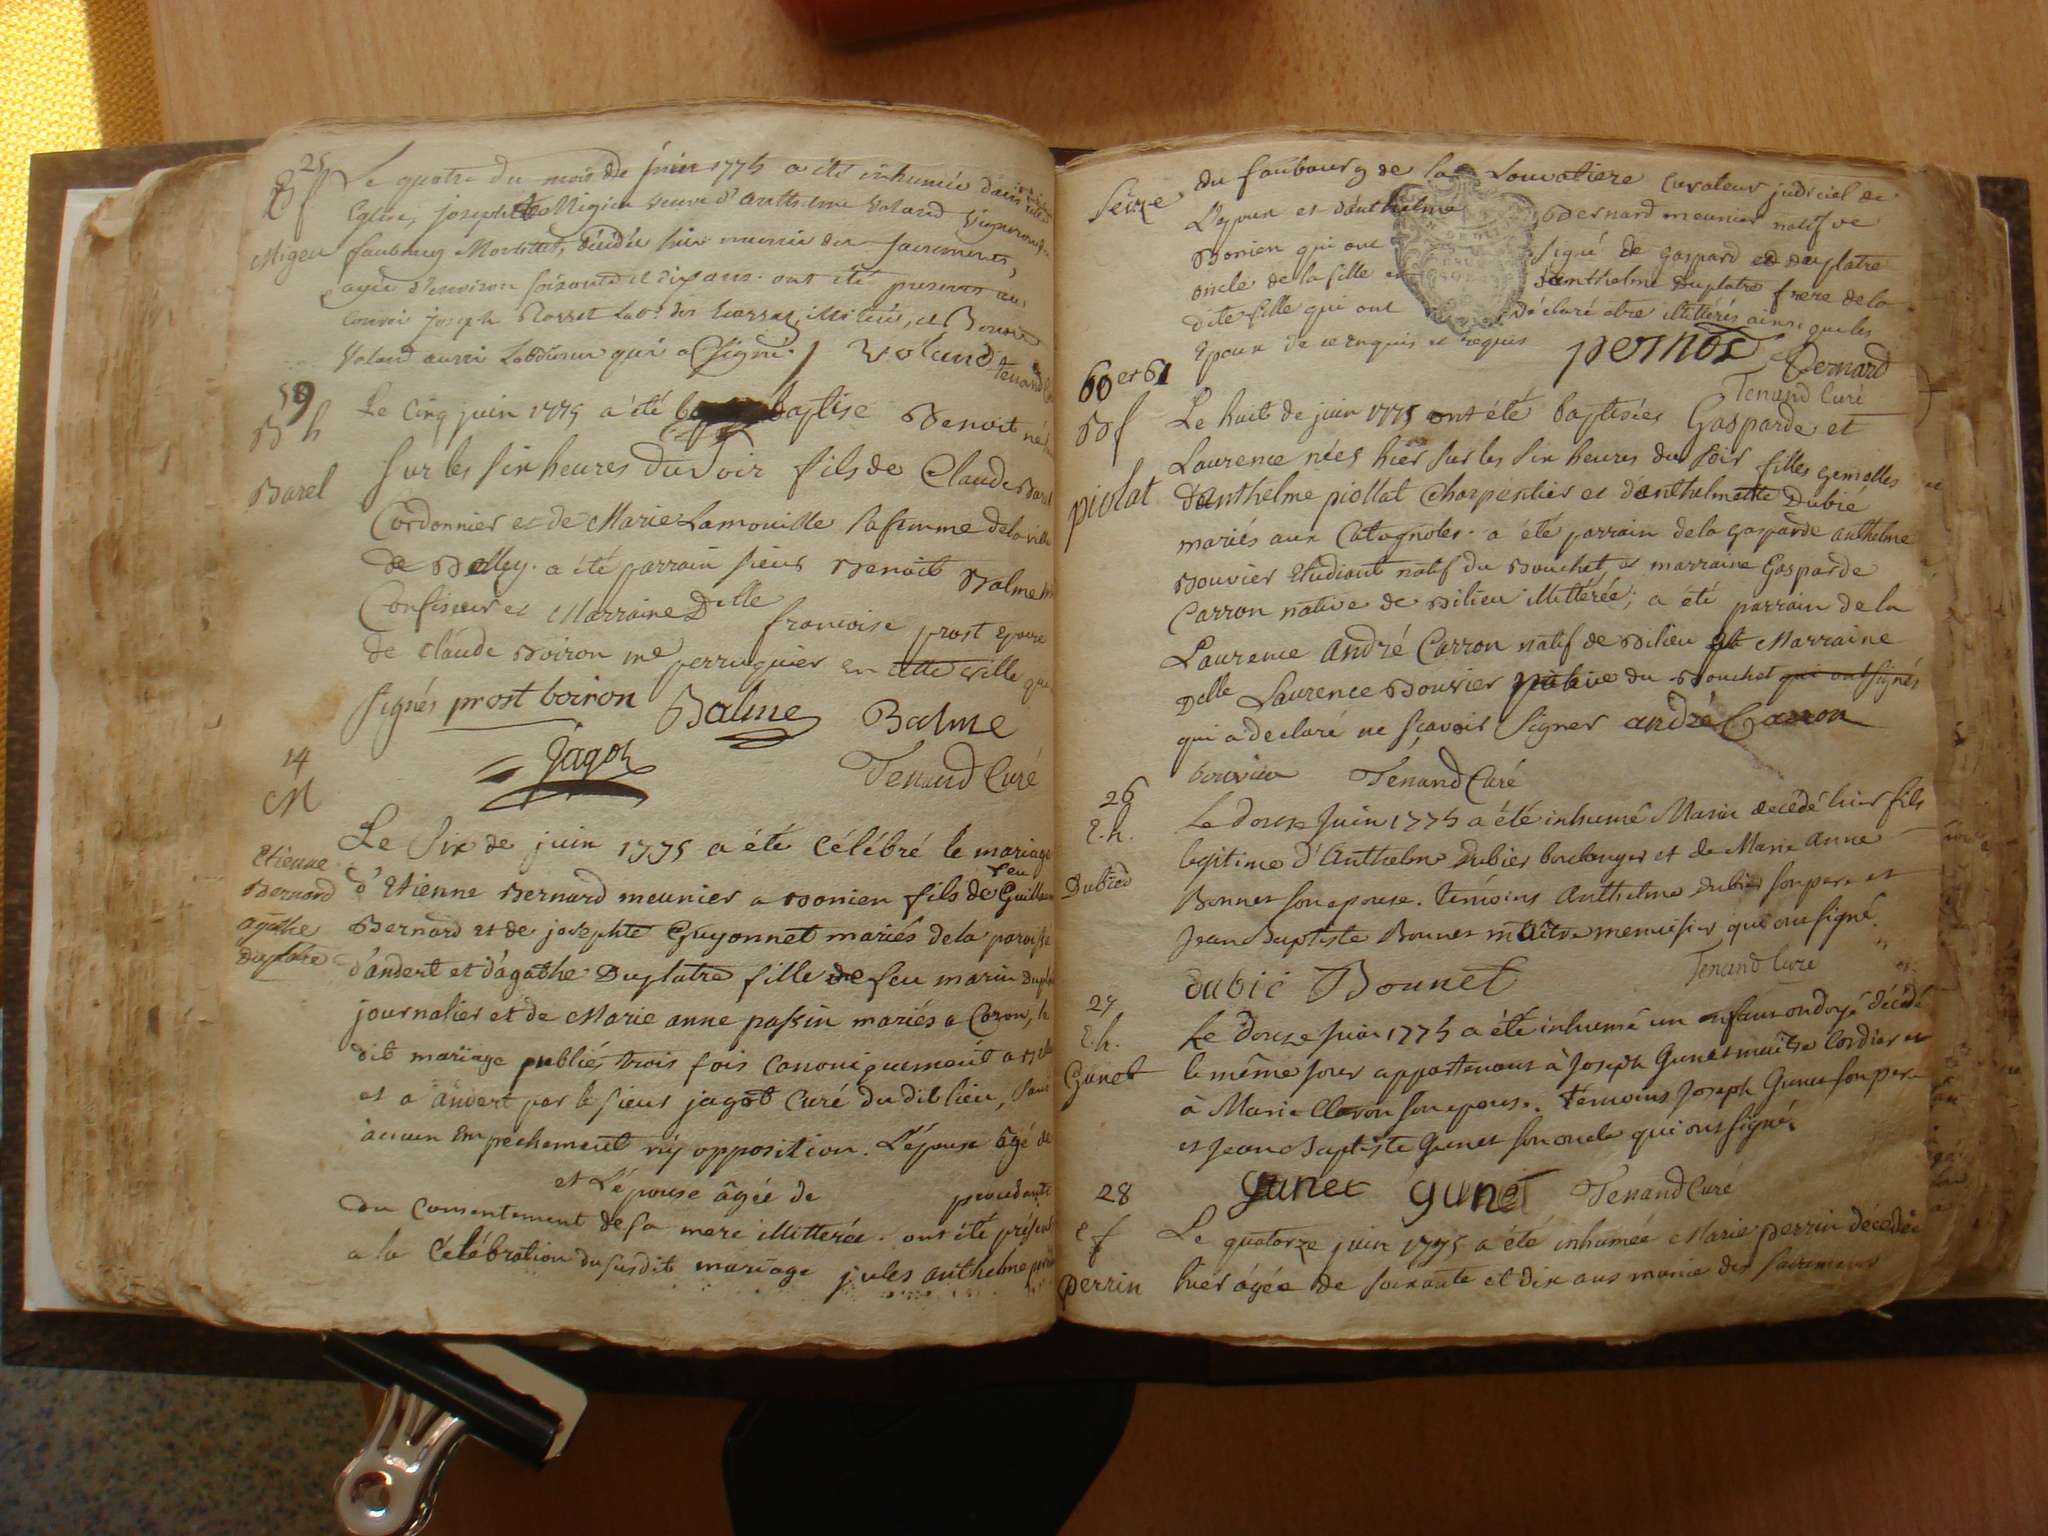 25
Le quatre du mois de juin 1775 a été inhumée dans
Eglise, Josephte veuve d'Anthelme Voland Vigneron
Migeu
faubourg décédée hier munie des sacrements,
agée d'environ soixante et dix ans. ont été presents au
convoi joseph Rosset illitéré, et Benoit
Voland aussi laboureur qui a signé. Voland
Tenand
59
B h
Le cinq juin 1775 a été baptise Benoit né
Barel
sur les six heures du soir fils de Claude Barel
Cordonnier et de Marie Lamouille sa femme de la ville
de Belley. a été parrain sieur Benoit Balme
Confiseur et Marraine Delle francoise prost epouse
de claude Boiron me perruquier en cette ville qui
signés prost boiron Balme Balme
Jagot Tenand Curé
14
M
Le Six de juin 1775 a été Célébré le mariage
Etienne
Bernard
agathe
Duplatre
d'Etienne Bernard meunier a Bonien fils de feu Guillaume
Bernard et de josephte Guyonnet mariés de la paroisse
d'andert et d'agathe Duplatre fille de feu marin
journalier et de Marie anne passin mariés a Coron, le
dit mariage publiés trois fois canoniquement a
et a andert par le sieur jagot Curé dudit lieu, sans
aucun Empechement ny opposition. L'époux âgé de
et L'épouse âgée de
du Consentement de sa mere illitterée. ont été présens
a la Célébration du susdit mariage jules anthelme
Seize
du faubourg de la Louvatiere Curateur judiciel de
L'epoux et d'anthelme Bernard meunier natif de
Bonien qui ont signé de gaspard duplatre
oncle de la fille et d'anthelme Duplatre frere de la
dite fille qui ont déclaré etre illitérés ainsi que les
Epoux de ce enquis et requis pernod Bernard
Tenand Curé
60 et 61
B f
Le huit de juin 1775 ont été baptisées Gasparde et
Laurence nées hier sur les six heures du soir filles gemelles
piolat
d'anthelme piollat Charpentier et d'anthelmette Dubié
mariés aux Catagnoles. a été parrain de la Gasparde anthelme
Bouvier Etudiant natif du Bouchet, et marraine Gasparde
Carron native de Bilieu illitérée; a été parrain de la
Laurence André Carron natif de Bilieu et Marraine
Delle Laurence Bouvier native du Bouchet qui ont signés
qui a declaré ne sçavoir signer andré Carron
bouvier Tenand Curé
26
E. h.
Le douze juin 1775 a été inhumé Marin decédé hier fils
Dubied
legitime d'Anthelme Dubier boulanger et de Marie Anne
Bonnet son epouse. témoins Anthelme Dubier son pere et
Jean Baptiste Bonnet maitre menuisier qui ont signé.
dubié Bonnet Tenand Curé
27
E. h.
Le douze Juin 1775 a été inhumé un enfant ondoyé décédé
Gunet
le même jour appartenant à Joseph Gunet maitre Cordier et
à Marie Claron son epouse. Temoins Joseph Gunet son pere
et Jean Baptiste Gunet son oncle qui ont signé.
gunet gunet Tenand Curé
28
E f
Le quatorze juin 1775 a été inhumée Marie perrin décédée
perrin
hier âgée de soixante et dix ans munie des sacremens